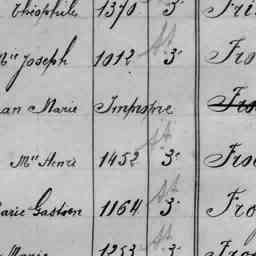 Théophile 1370 3e Fri
Mie Joseph 1012 3e Fro
an Marie Impropre Fro
Mie Henri 1452 3e Fro
arie Gaston 1164 3e Fro
Marie 1253 3e Fro